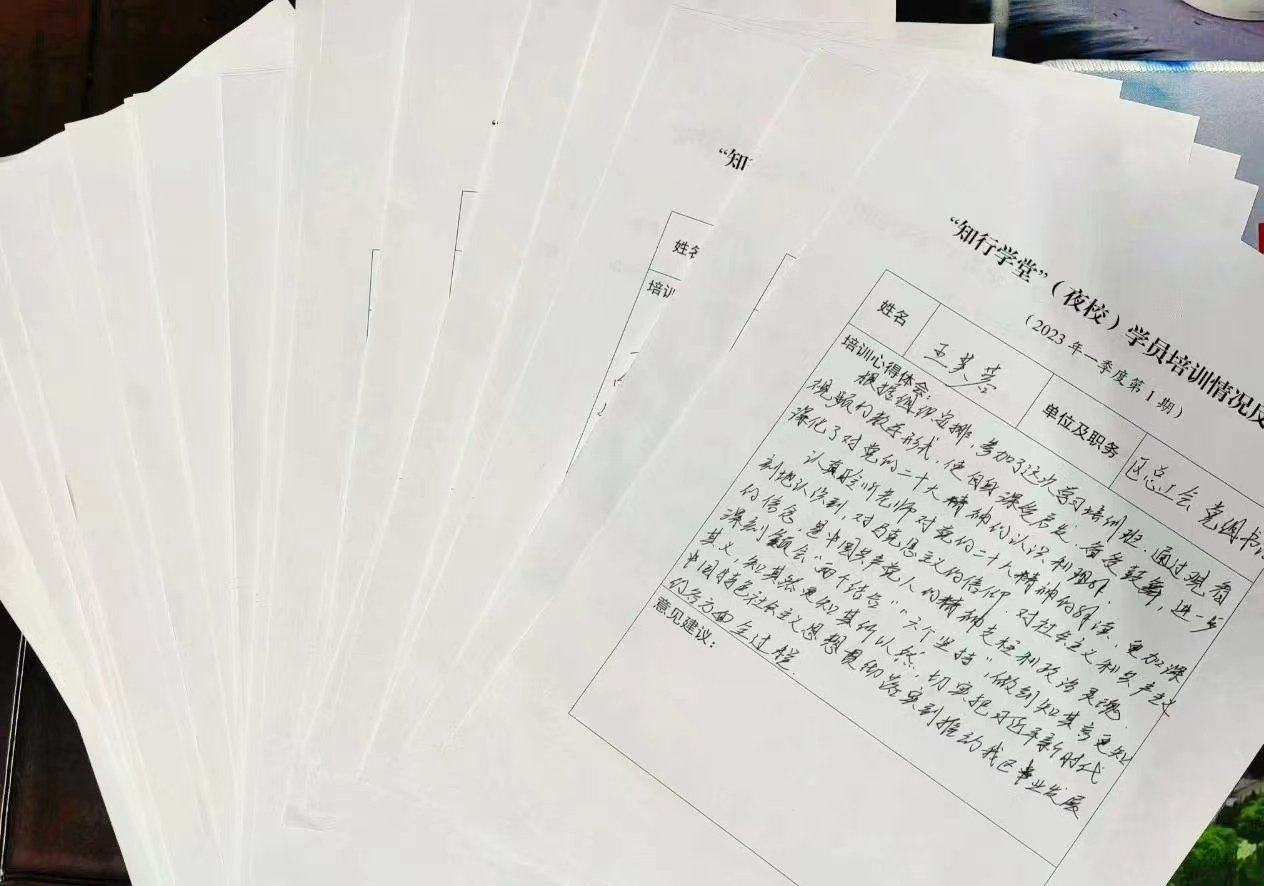 “知
姓名
培训
“知行学堂”（夜校）学员培训情况反
（2023年一季度第1期）
姓名
王芙蓉
单位及职务
区总工会 党组书记
培训心得体会：
根据组织安排，参加了这次学习培训班，通过观看
视频的教学形式，使自我深受启发，备受鼓舞，进一步
深化了对党的二十大精神的认识和理解。
认真聆听老师对党的二十大精神的解读，更加深
刻地认识到，对马克思主义的信仰，对社会主义和共产主义
的信念，是中国共产党人的精神支柱和政治灵魂。
深刻领会“两个结合”“六个坚持”，做到知其言更知
其义，知其然更知其所以然，切实把习近平新时代
中国特色社会主义思想贯彻落实到推动我区事业发展
的各方面全过程。
意见建议：